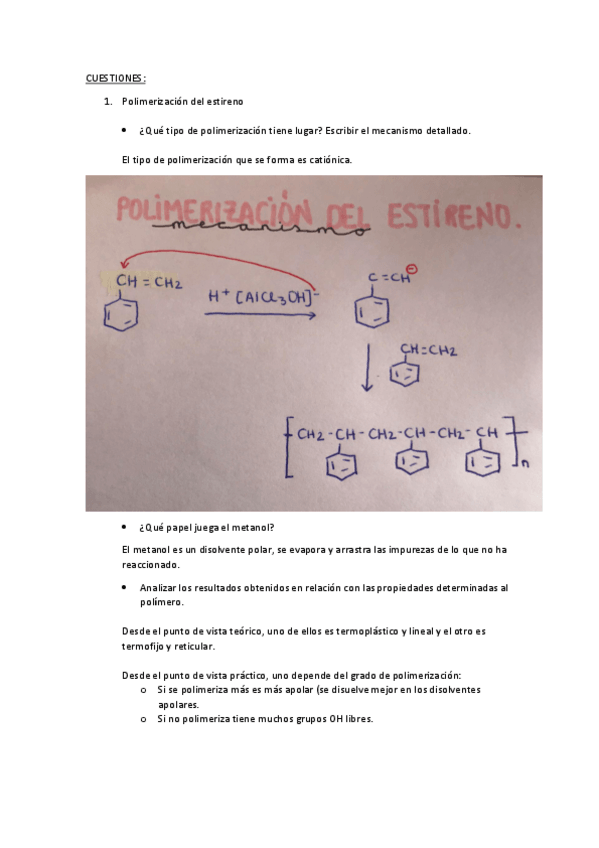 CUESTIONES:
1. Polimerización del estireno
• ¿Qué tipo de polimerización tiene lugar? Escribir el mecanismo detallado.
El tipo de polimerización que se forma es catiónica.
POLIMERIZACIÓN DEL ESTIRENO.
mecanismo
CH = CH2
H+ [AlCl3OH]-
C = CH ⊖
CH=CH2
[CH2-CH-CH2-CH-CH2-CH]n
• ¿Qué papel juega el metanol?
El metanol es un disolvente polar, se evapora y arrastra las impurezas de lo que no ha
reaccionado.
• Analizar los resultados obtenidos en relación con las propiedades determinadas al
polímero.
Desde el punto de vista teórico, uno de ellos es termoplástico y lineal y el otro es
termofijo y reticular.
Desde el punto de vista práctico, uno depende del grado de polimerización:
o Si se polimeriza más es más apolar (se disuelve mejor en los disolventes
apolares.
o Si no polimeriza tiene muchos grupos OH libres.